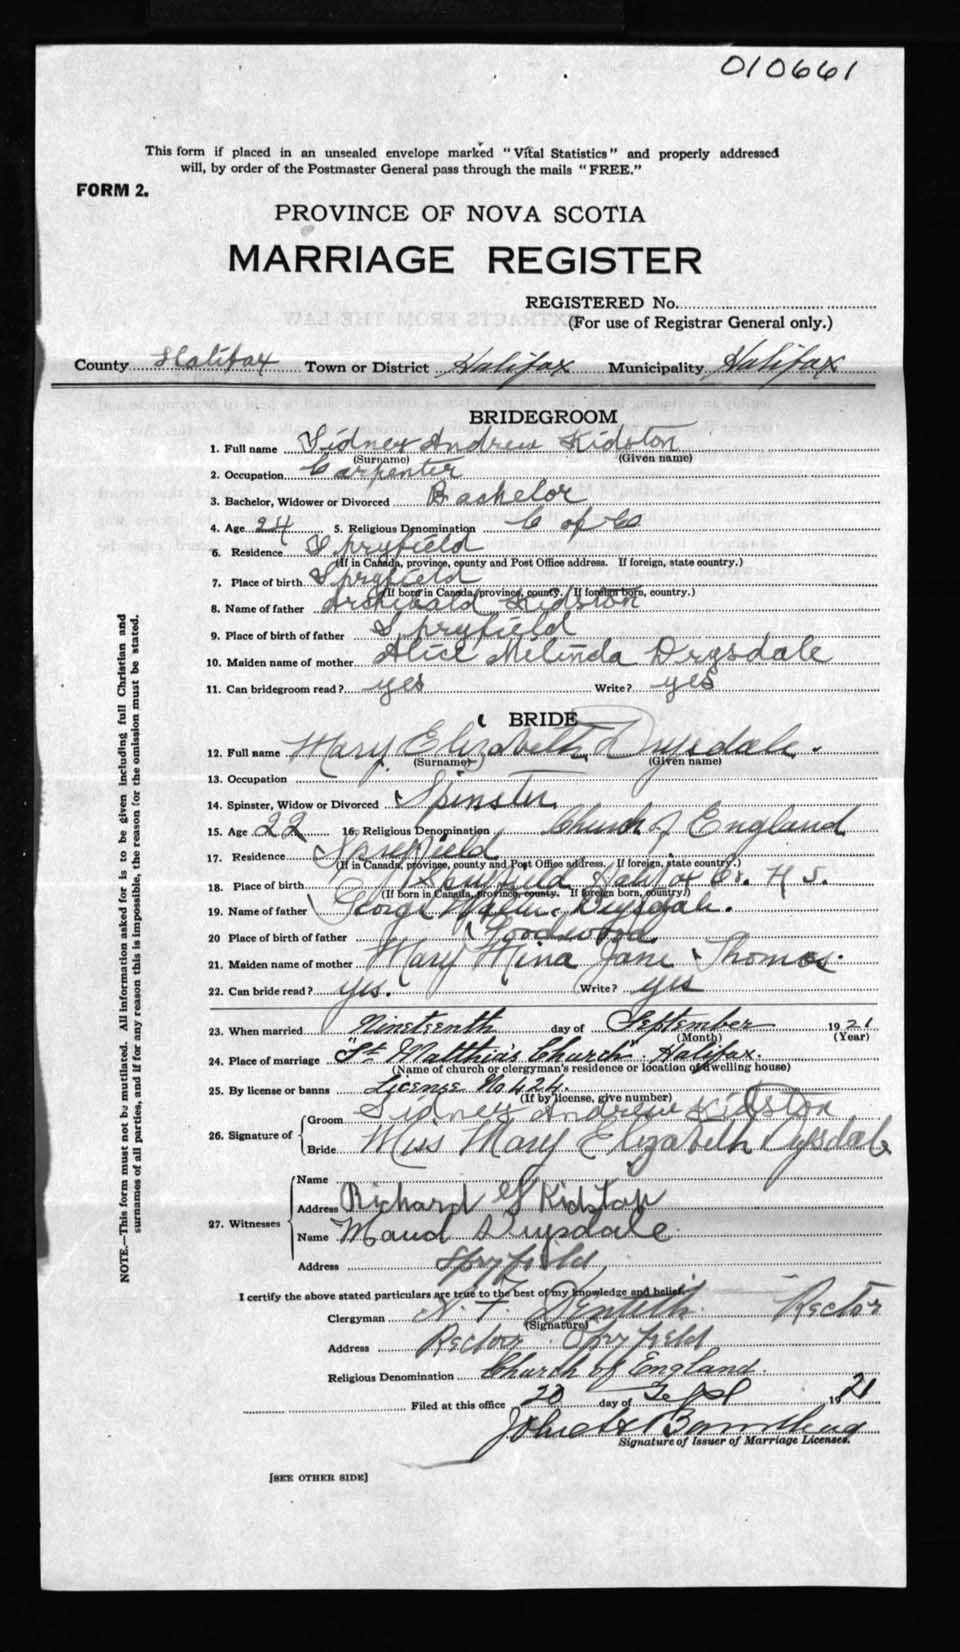 010661
This form if placed in an unsealed envelope marked "Vital Statistics" and properly addressed
will, by order of the Postmaster General pass through the mails "FREE."
FORM 2.
PROVINCE OF NOVA SCOTIA
MARRIAGE REGISTER
REGISTERED No.
(For use of Registrar General only.)
County Halifax Town or District Halifax Municipality Halifax
BRIDEGROOM
1. Full name Sidney Andrew Kidston
(Surname) (Given name)
2. Occupation Carpenter
3. Bachelor, Widower or Divorced Bachelor
4. Age 24 5. Religious Denomination C of E
6. Residence Spryfield
(If in Canada, province, county and Post Office address. If foreign, state country.)
7. Place of birth Spryfield
(If born in Canada, province, county. If foreign born, country.)
8. Name of father Archibald Kidston
9. Place of birth of father Spryfield
10. Maiden name of mother Alice Melinda Drysdale
11. Can bridegroom read? yes Write? yes
BRIDE
12. Full name Mary Elizabeth Drysdale.
(Surname) (Given name)
13. Occupation
14. Spinster, Widow or Divorced Spinster
15. Age 22 16. Religious Denomination Church of England
17. Residence Spryfield
(If in Canada, province, county and Post Office address. If foreign, state country.)
18. Place of birth Spryfield Halifax Co. N S.
(If born in Canada, province, county. If foreign born, country.)
19. Name of father George Drysdale.
20 Place of birth of father Goodwood
21. Maiden name of mother Mary Mina Jane Thomas.
22. Can bride read? yes. Write? yes
23. When married Nineteenth day of September 1921
(Month) (Year)
24. Place of marriage "St Matthia's Church" Halifax.
(Name of church or clergyman's residence or location of dwelling house)
25. By license or banns License No 424.
(If by license, give number)
26. Signature of Groom Sidney Andrew Kidston
Bride Miss Mary Elizabeth Drysdale
27. Witnesses
Name
Address Richard Kidston
Name Maud Drysdale
Address Spryfield
I certify the above stated particulars are true to the best of my knowledge and belief.
Clergyman Rector
(Signature)
Address Rector Spryfield
Religious Denomination Church of England.
Filed at this office 20 day of Sept 1921
Signature of Issuer of Marriage Licenses.
[SEE OTHER SIDE]
NOTE.—This form must not be mutilated. All information asked for is to be given including full Christian and
surnames of all parties, and if for any reason this is impossible, the reason for the omission must be stated.